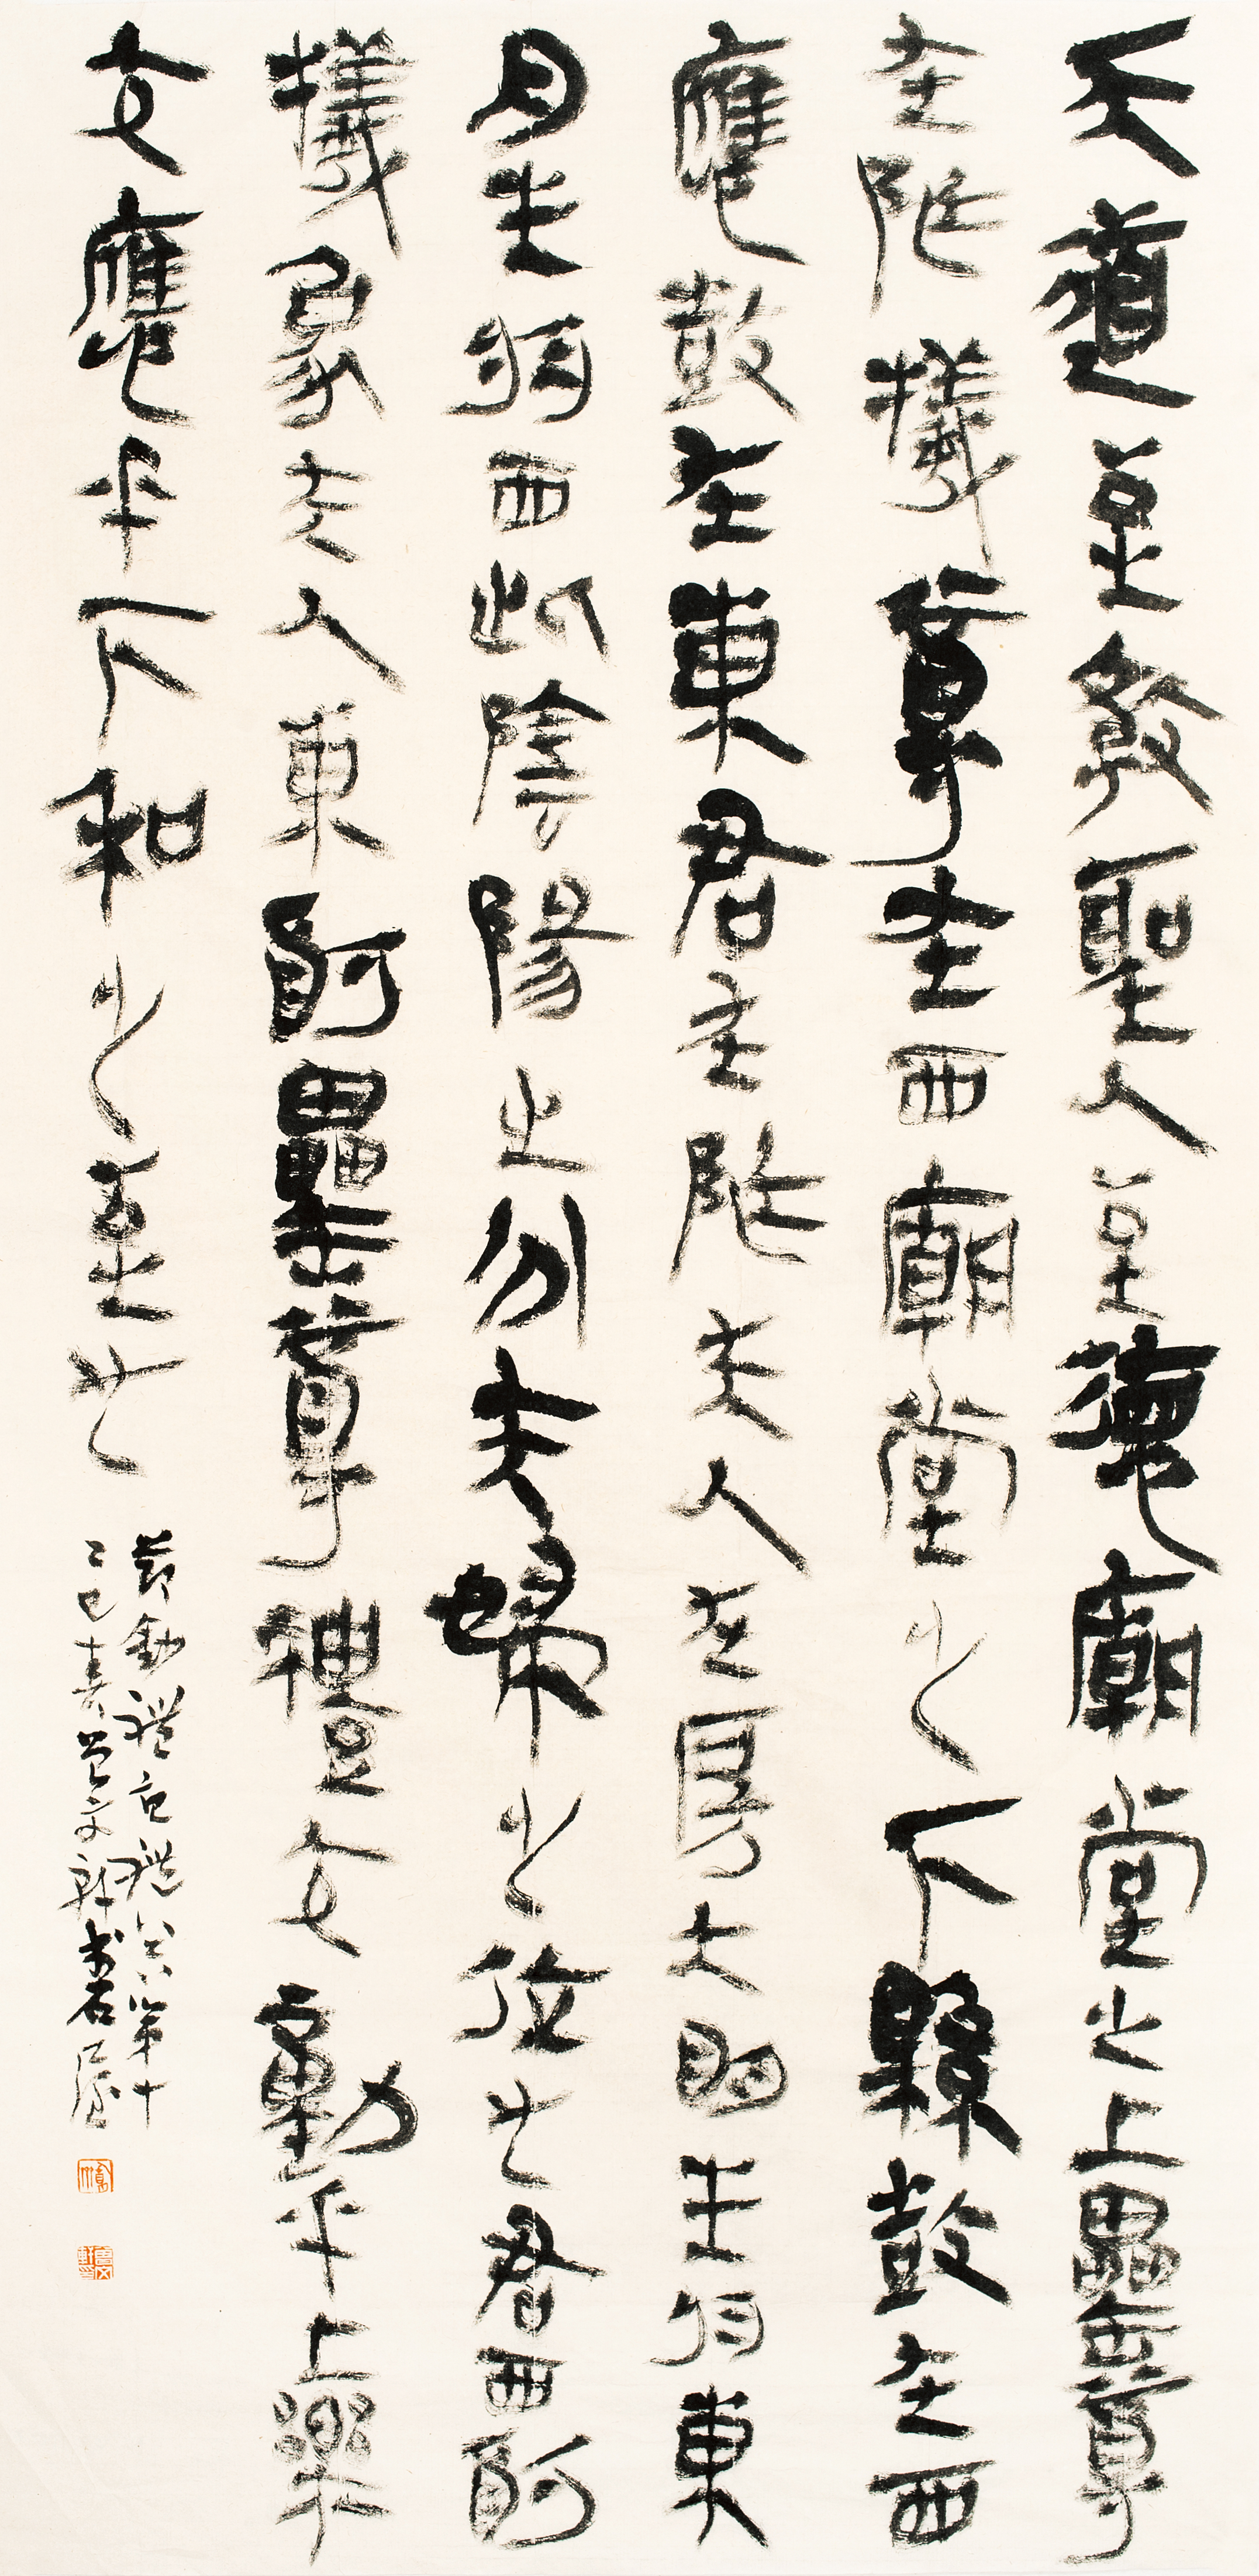 天道至教聖人至德廟堂之上罍尊
在阼犧尊在西廟堂之下縣鼓在西
應鼓在東君在阼夫人在房大明生於東
月生於西此陰陽之分夫婦之位也君西酌
犧象夫人東酌罍尊禮交動乎上樂
交應乎下和之至也
節鈔禮記禮器第十
乙巳春文軒書